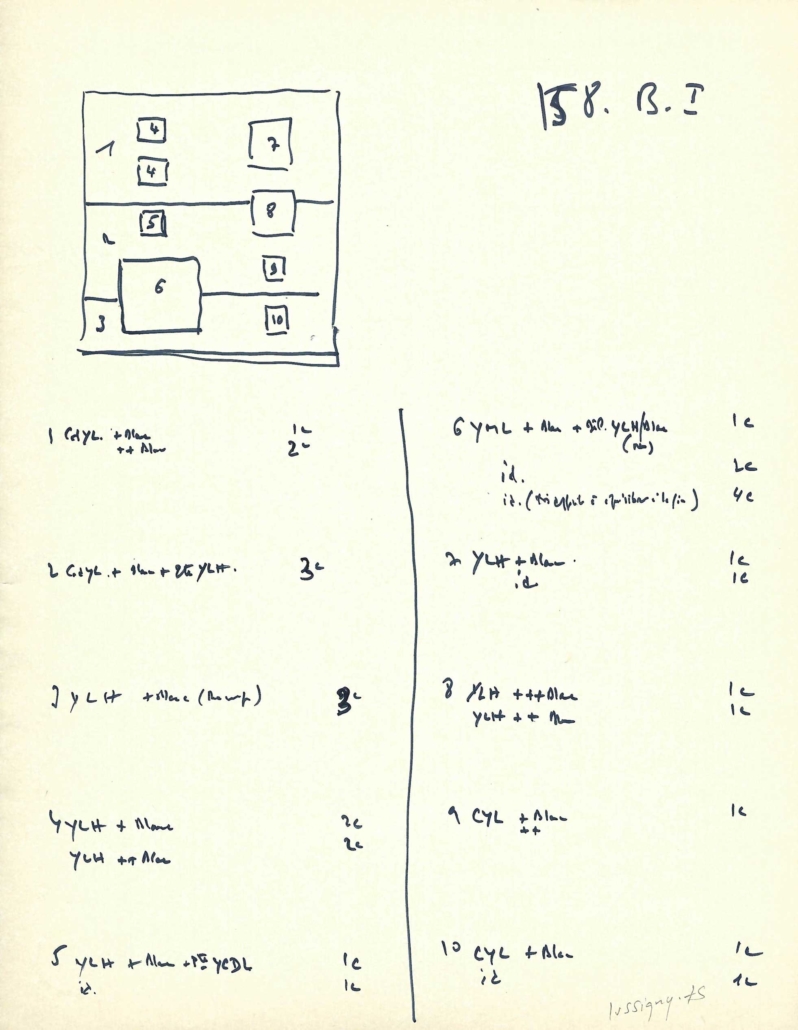 158. B. I
1
4
7
4
8
2
5
9
6
3
10
1 + Blanc 1c
++ Blanc 2c
2 + Blanc + YLH. 3c
3 YLH + Blanc 3c
4 YLH + Blanc 2c
YLH ++ Blanc 2c
5 YLH + Blanc + YCDL 1c
id. 1c
6 YML + Blanc + YLH/Blanc 1c
id. 2c
id. 4c
7 YLH + Blanc. 1c
id 1c
8 YLH +++ Blanc 1c
YLH ++ Blanc 1c
9 CYL + Blanc 1c
++
10 CYL + Blanc 1c
id 1c